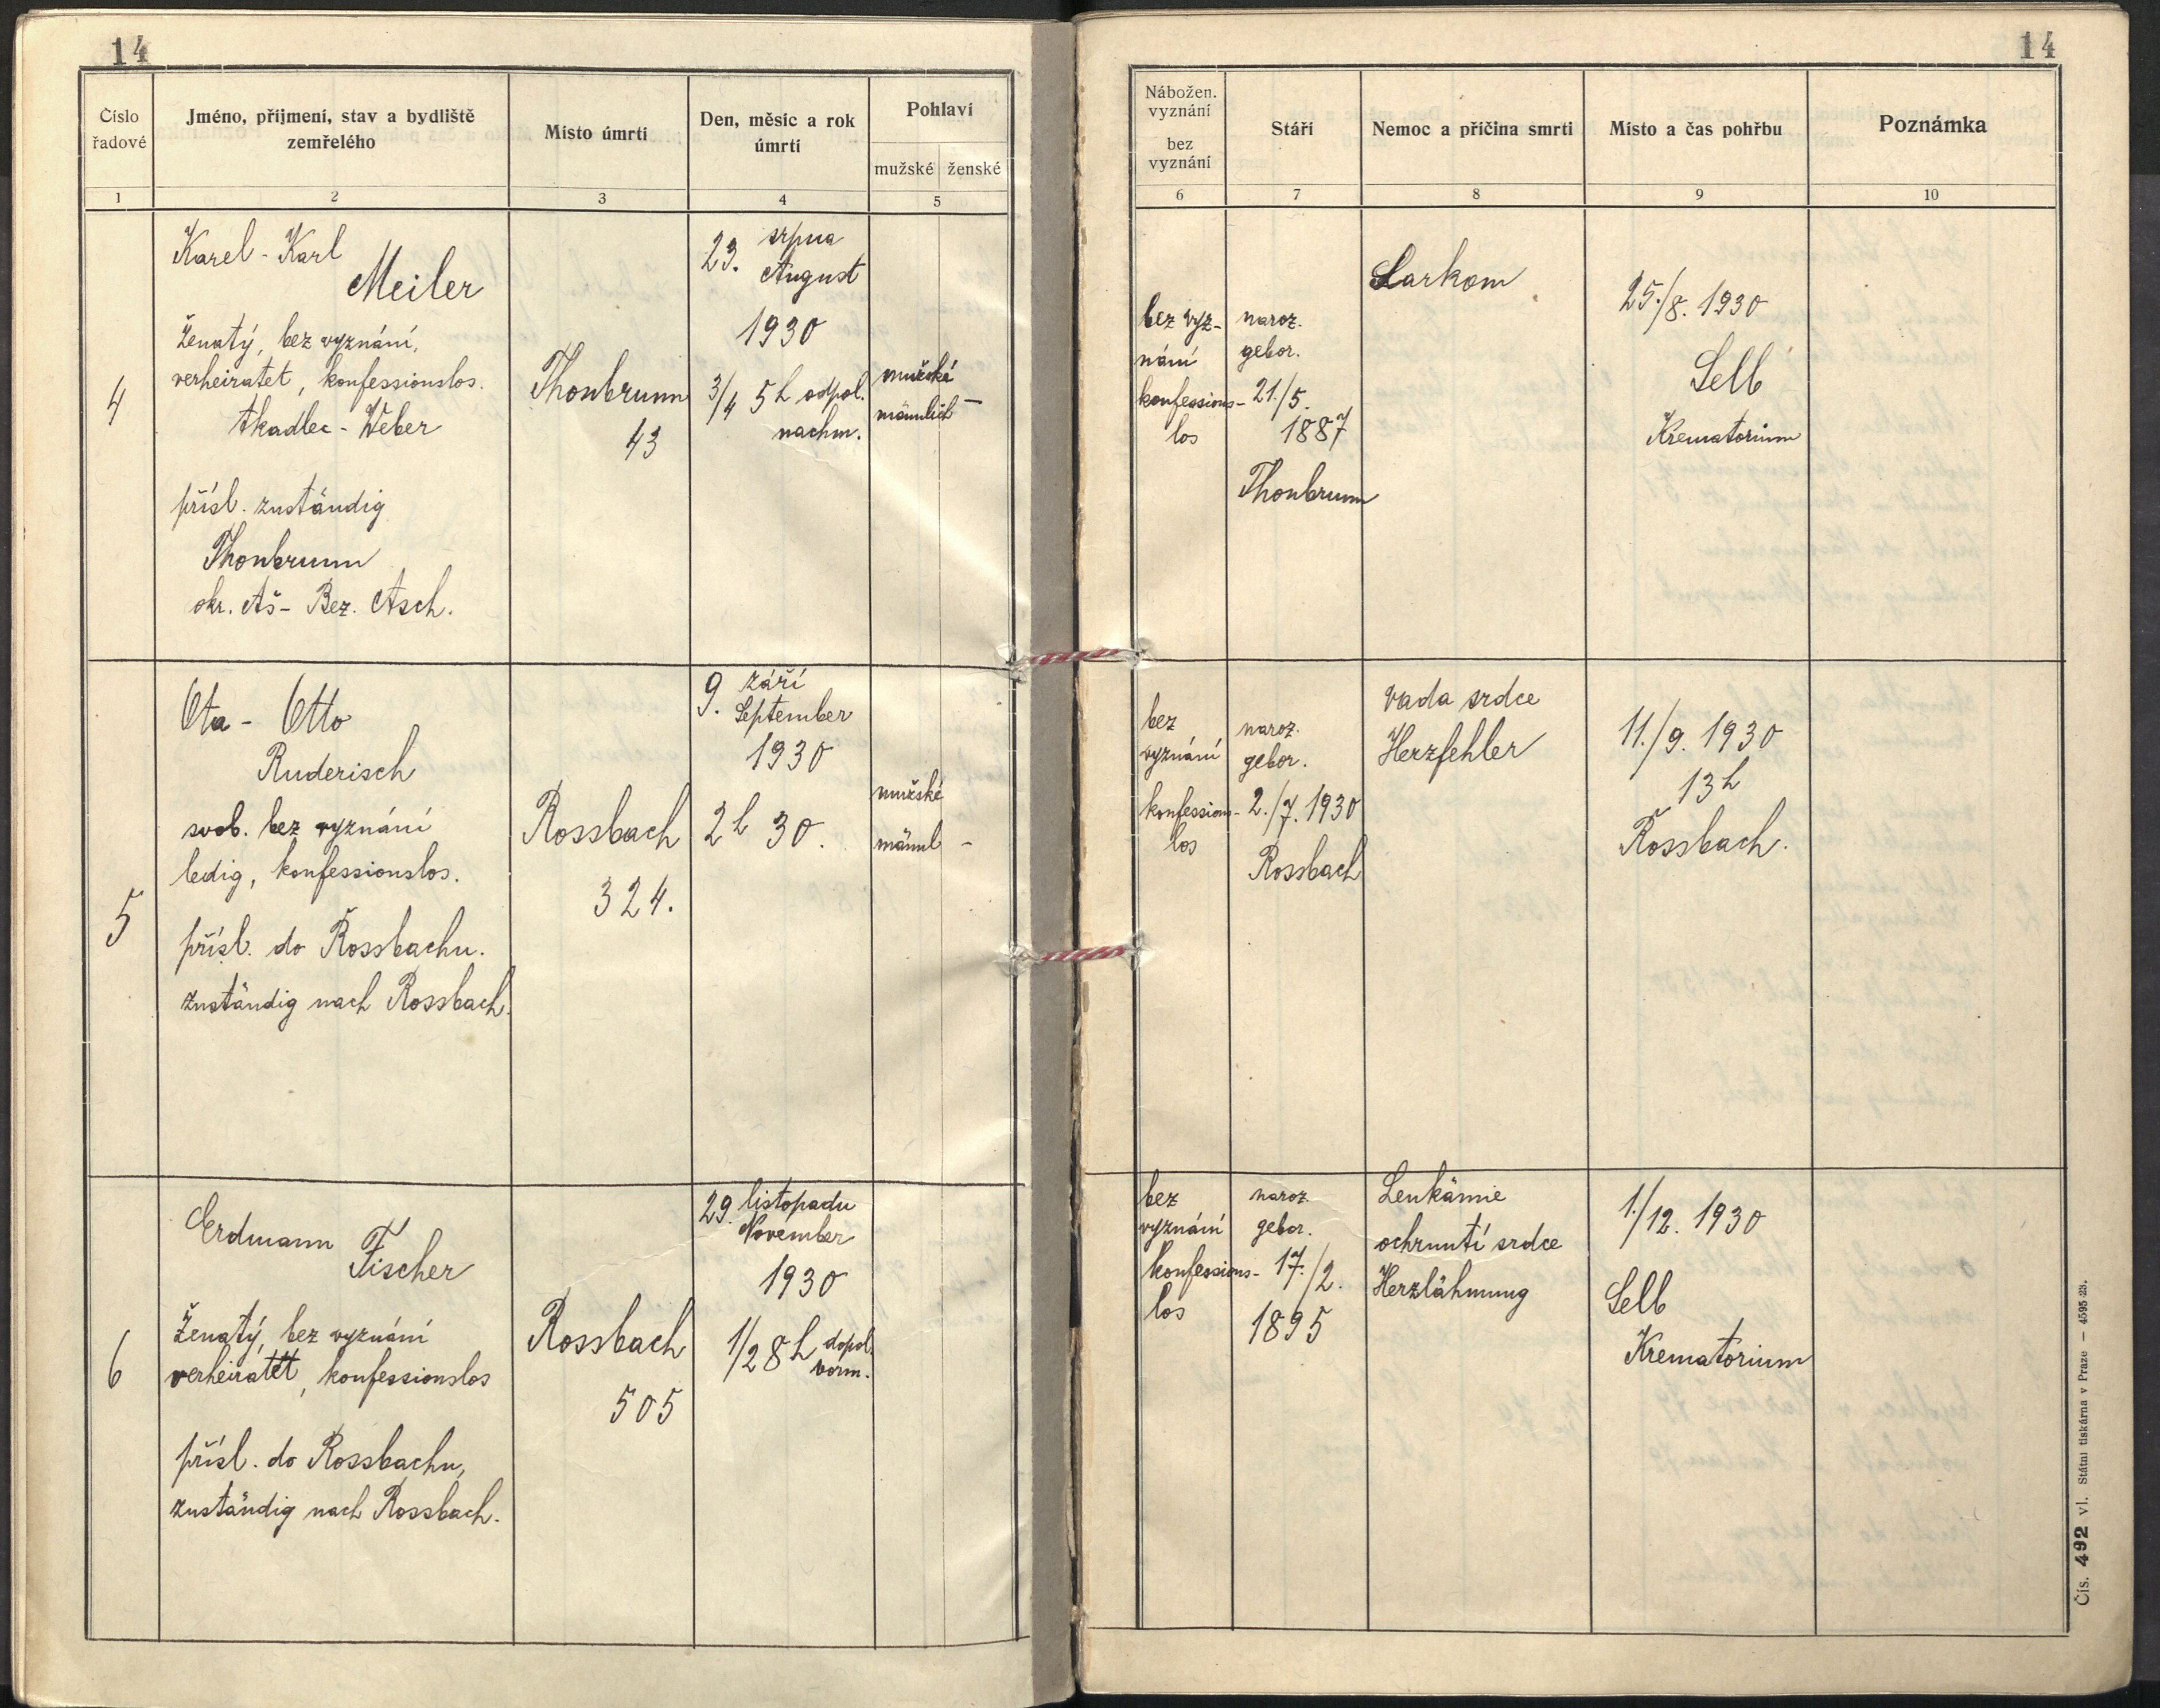 14
Číslo
řadové
Jméno, příjmení, stav a bydliště
zemřelého
Místo úmrtí
Den, měsíc a rok
úmrtí
Pohlaví
mužské
ženské
1
2
3
4
5
4
Karel - Karl
Meiler
ženatý, bez vyznání,
verheiratet, konfessionslos.
tkadlec - Weber
přísl. zuständig
Thonbrunn
okr. Aš - Bez. Asch.
Thonbrunn
43
23. srpna
August
1930
3/4 5 h odpol.
nachm.
mužské
männlich -
5
Ota - Otto
Ruderisch
svob. bez vyznání
ledig, konfessionslos.
přísl. do Rossbachu.
zuständig nach Rossbach.
Rossbach
324.
9. září
September
1930
2 h 30.
mužské
männl -
6
Erdmann
Fischer
ženatý, bez vyznání
verheiratet, konfessionslos
přísl. do Rossbachu,
zuständig nach Rossbach.
Rossbach
505
29. listopadu
November
1930
1/2 8 h dopol.
vorm.
14
Nábožen.
vyznání
bez
vyznání
Stáří
Nemoc a příčina smrti
Místo a čas pohřbu
Poznámka
6
7
8
9
10
bez vyz-
nání
konfessions-
los
naroz.
gebor.
21./5.
1887
Thonbrunn
Sarkom
25./8. 1930
Selb
Krematorium
bez
vyznání
konfession-
los
naroz.
gebor.
2./7. 1930
Rossbach
vada srdce
Herzfehler
11./9. 1930
13 h
Rossbach.
bez
vyznání
konfessions-
los
naroz.
gebor.
17./2.
1895
Leukämie
ochrnutí srdce
Herzlähmung
1./12. 1930
Selb
Krematorium
Čís. 492 vl. Státní tiskárna v Praze — 4595 28.